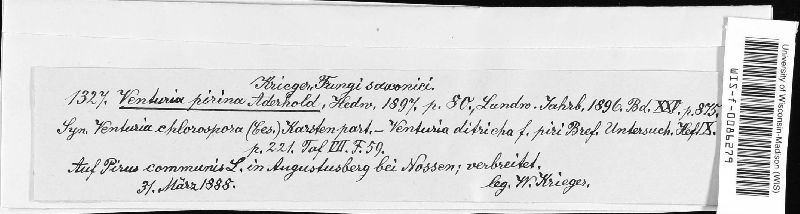 Krieger, Fungi saxonici.
1327. Venturia pirina Aderhold, Hedw. 1897. p. 80., Landw. Jahrb. 1896. Bd. XXV. p. 875.
Syn. Venturia chlorospora (Ces.) Karsten part. – Venturia ditricha f. piri Bref. Untersuch. Heft IX.
p. 221. Taf. VII. F. 59.
Auf Pirus communis L. in Augustusberg bei Nossen; verbreitet.
31. März 1888. leg. W. Krieger.
University of Wisconsin-Madison (WIS)
WIS-f-0086279